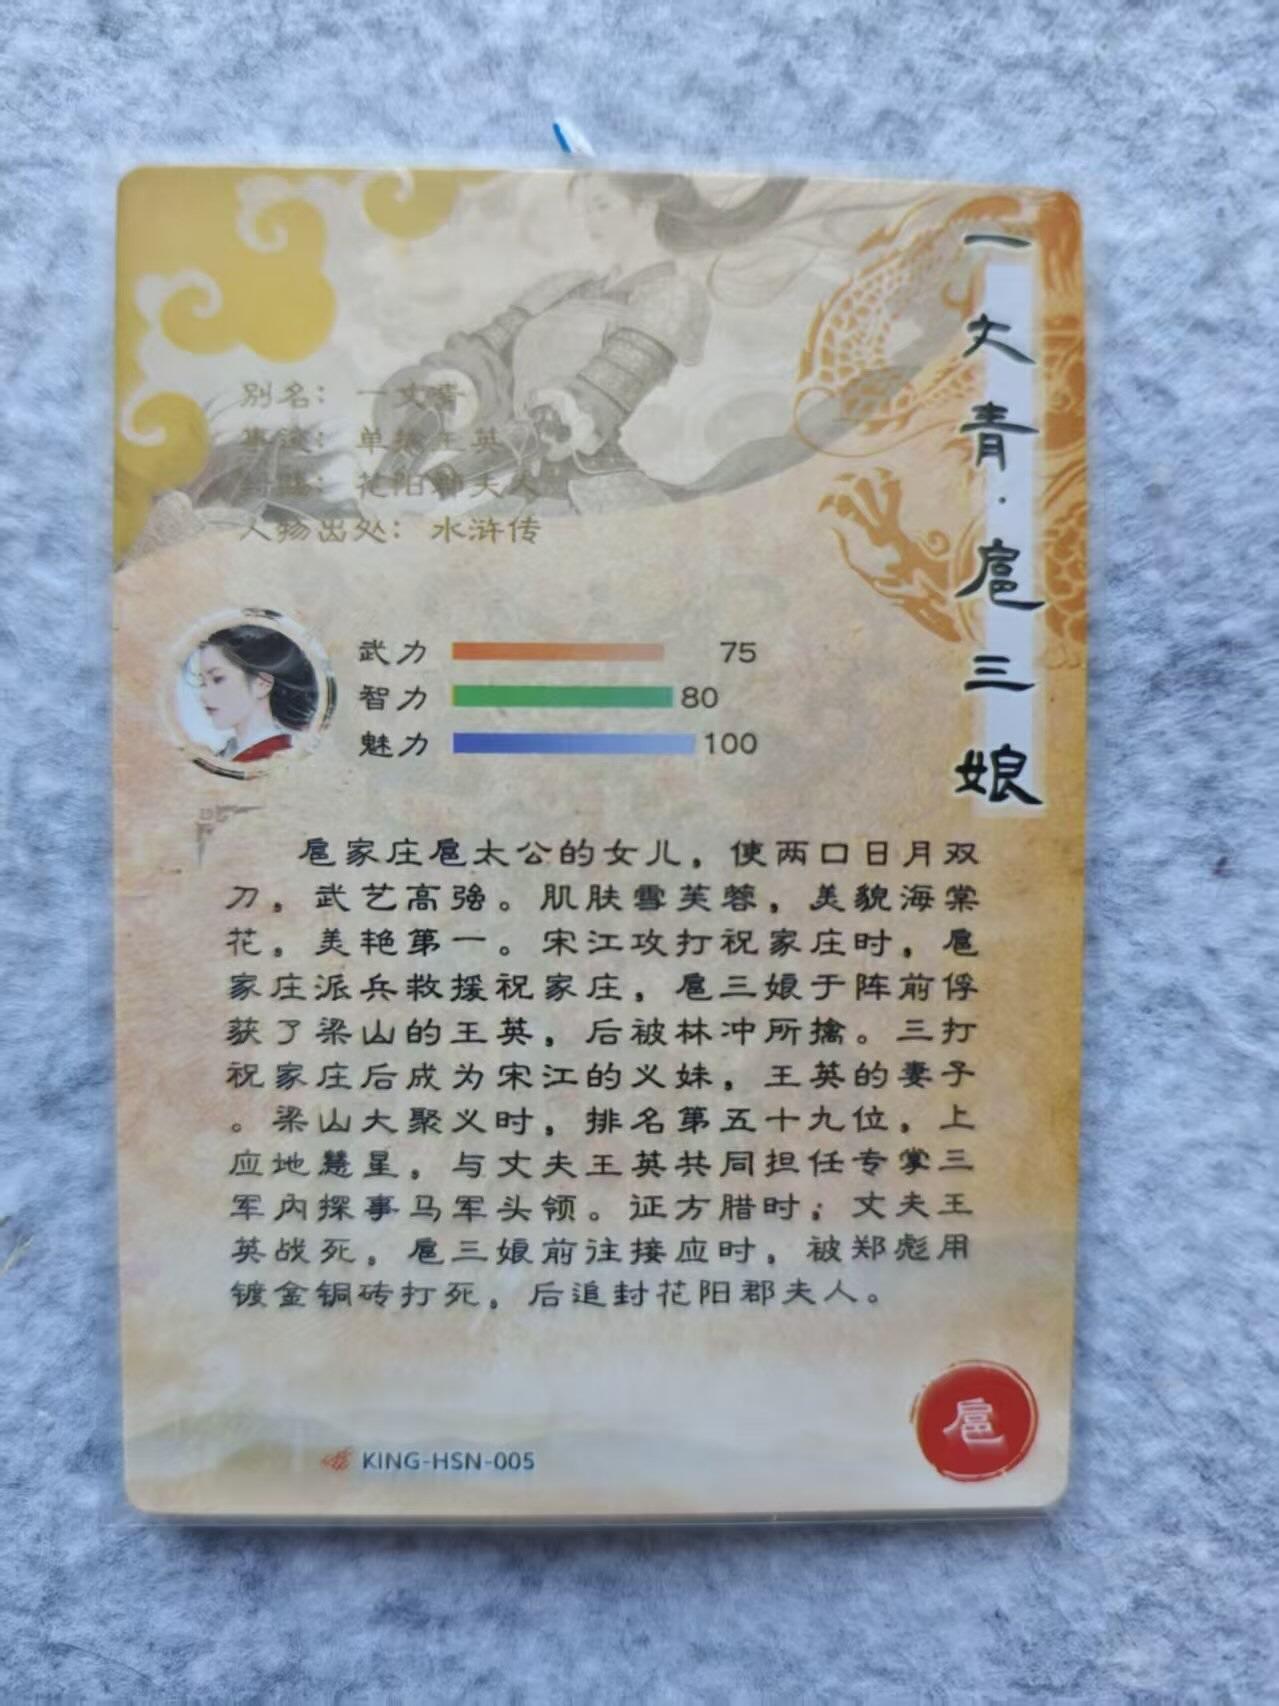 一丈青·扈三娘
别名：一丈青
事迹：单挑王英
封号：花阳郡夫人
人物出处：水浒传
武力 75
智力 80
魅力 100
扈家庄扈太公的女儿，使两口日月双
刀，武艺高强。肌肤雪芙蓉，美貌海棠
花，美艳第一。宋江攻打祝家庄时，扈
家庄派兵救援祝家庄，扈三娘于阵前俘
获了梁山的王英，后被林冲所擒。三打
祝家庄后成为宋江的义妹，王英的妻子
。梁山大聚义时，排名第五十九位，上
应地慧星，与丈夫王英共同担任专掌三
军内探事马军头领。征方腊时，丈夫王
英战死，扈三娘前往接应时，被郑彪用
镀金铜砖打死，后追封花阳郡夫人。
扈
KING-HSN-005